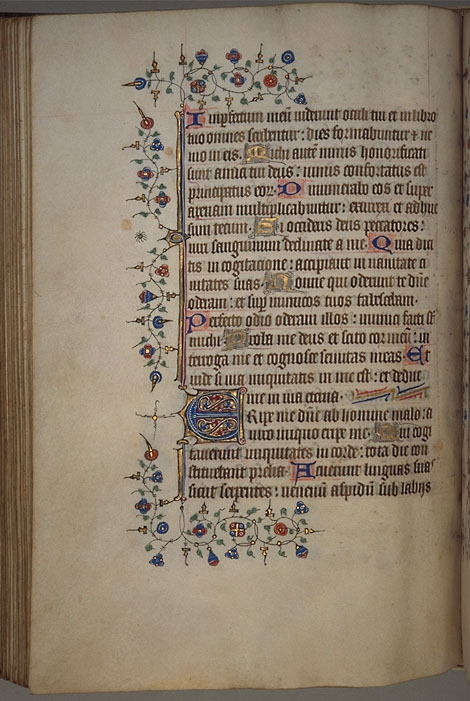 Imperfectum meū viderunt oculi tui et in libro
tuo omnes scribentur : dies formabuntur & ne
mo in eis. Michi autē nimis honorificati
sunt amici tui deus : nimis confortatus est
principatus eor. Dinumerabo eos et super
arenam multiplicabuntur : exurrexi et adhuc
sum tecum. Si occideris deus peccatores :
viri sanguinum declinate a me. Quia dici
tis in cogitacione : accipiant in vanitate ci
uitates suas. Nonne qui oderunt te dn̄e
oderam : et sup inimicos tuos tabescebam.
Perfecto odio oderam illos : inimici facti sūt
michi Proba me deus et scito cor meū : in
terroga me et cognosce semitas meas. Et
vide si via iniquitatis in me est : et deduc
me in via eterna.
ERipe me dn̄e ab homine malo : a
viro iniquo eripe me. Qui cogi
tauerunt iniquitates in corde : tota die con
stituebant prelia. Acuerunt linguas suas
sicut serpentes : venenū aspidū sub labijs